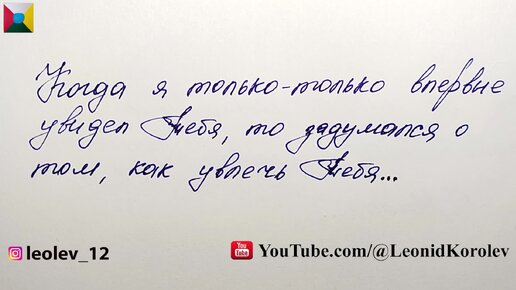 Когда я только-только впервые
увидел Тебя, то задумался о
том, как увлечь Тебя...
leolev_12
YouTube.com/@LeonidKorolev